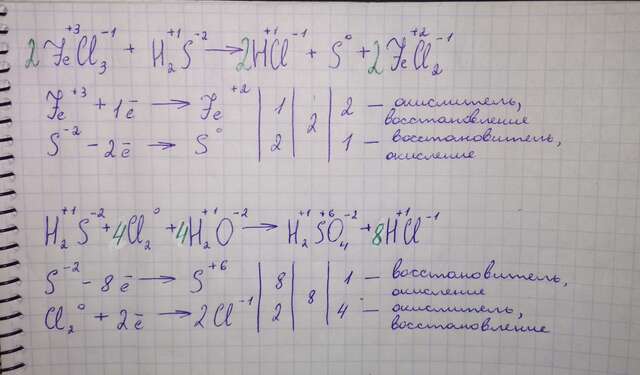 2Fe⁺³Cl₃⁻¹ + H₂⁺¹S⁻² → 2H⁺¹Cl⁻¹ + S⁰ + 2Fe⁺²Cl₂⁻¹
Fe⁺³ + 1ē → Fe⁺² | 1 | 2 | 2 — окислитель, восстановление
S⁻² - 2ē → S⁰ | 2 | | 1 — восстановитель, окисление
H₂⁺¹S⁻² + 4Cl₂⁰ + 4H₂⁺¹O⁻² → H₂⁺¹S⁺⁶O₄⁻² + 8H⁺¹Cl⁻¹
S⁻² - 8ē → S⁺⁶ | 8 | 8 | 1 — восстановитель, окисление
Cl₂⁰ + 2ē → 2Cl⁻¹ | 2 | | 4 — окислитель, восстановление